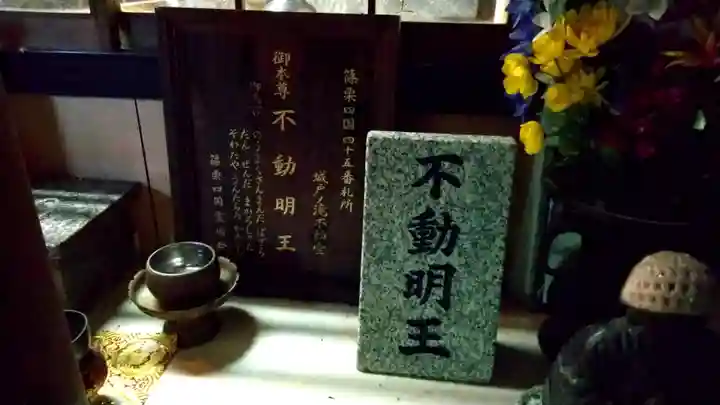 篠栗四国四十五番札所
城戸ノ滝不動堂
御本尊 不動明王
のうまくさんまんだ ばざら
だん せんだ まかろしゃだ
そわたや うんたらた かんまん
篠栗四国霊場会
不動明王